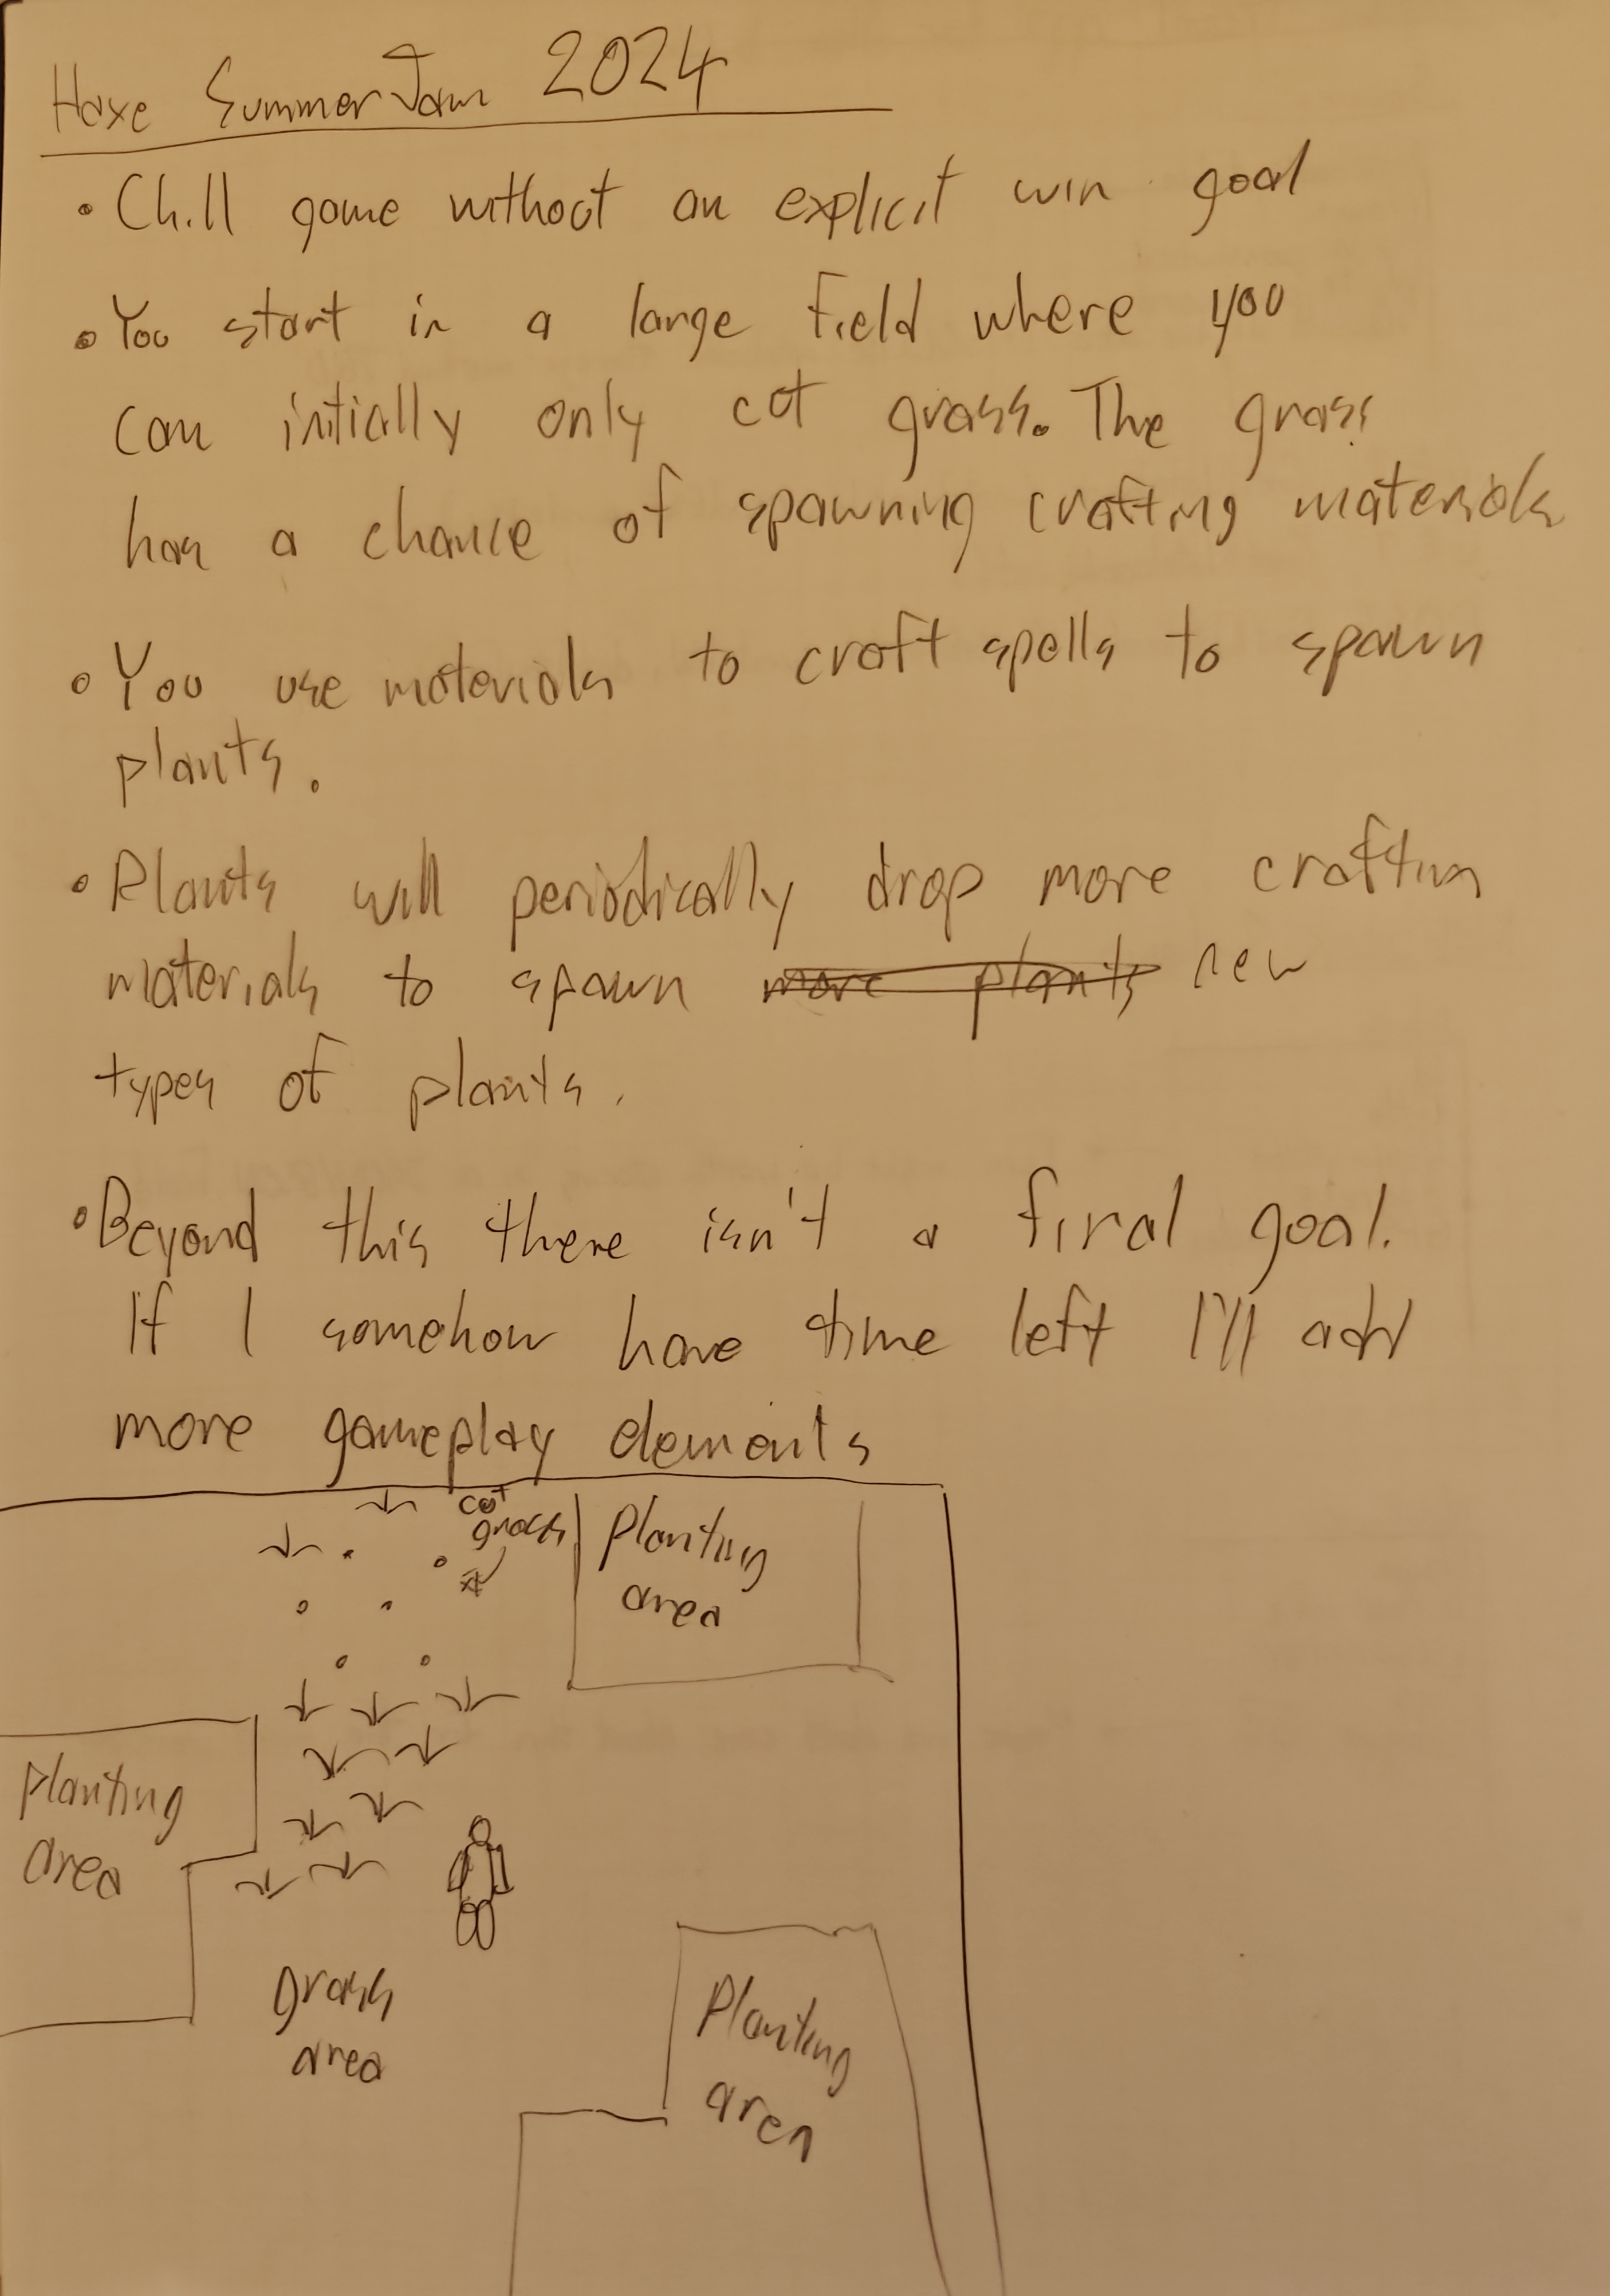 Haxe Summer Jam 2024
• Chill game without an explicit win goal
• You start in a large field where you
can initially only cut grass. The grass
has a chance of spawning crafting materials
• You use materials to craft spells to spawn
plants.
• Plants will periodically drop more craftin
materials to spawn more plants new
types of plants.
• Beyond this there isn't a final goal.
If I somehow have time left I'll add
more gameplay elements
cut
grass
Planting
area
Planting
area
Grass
area
Planting
area